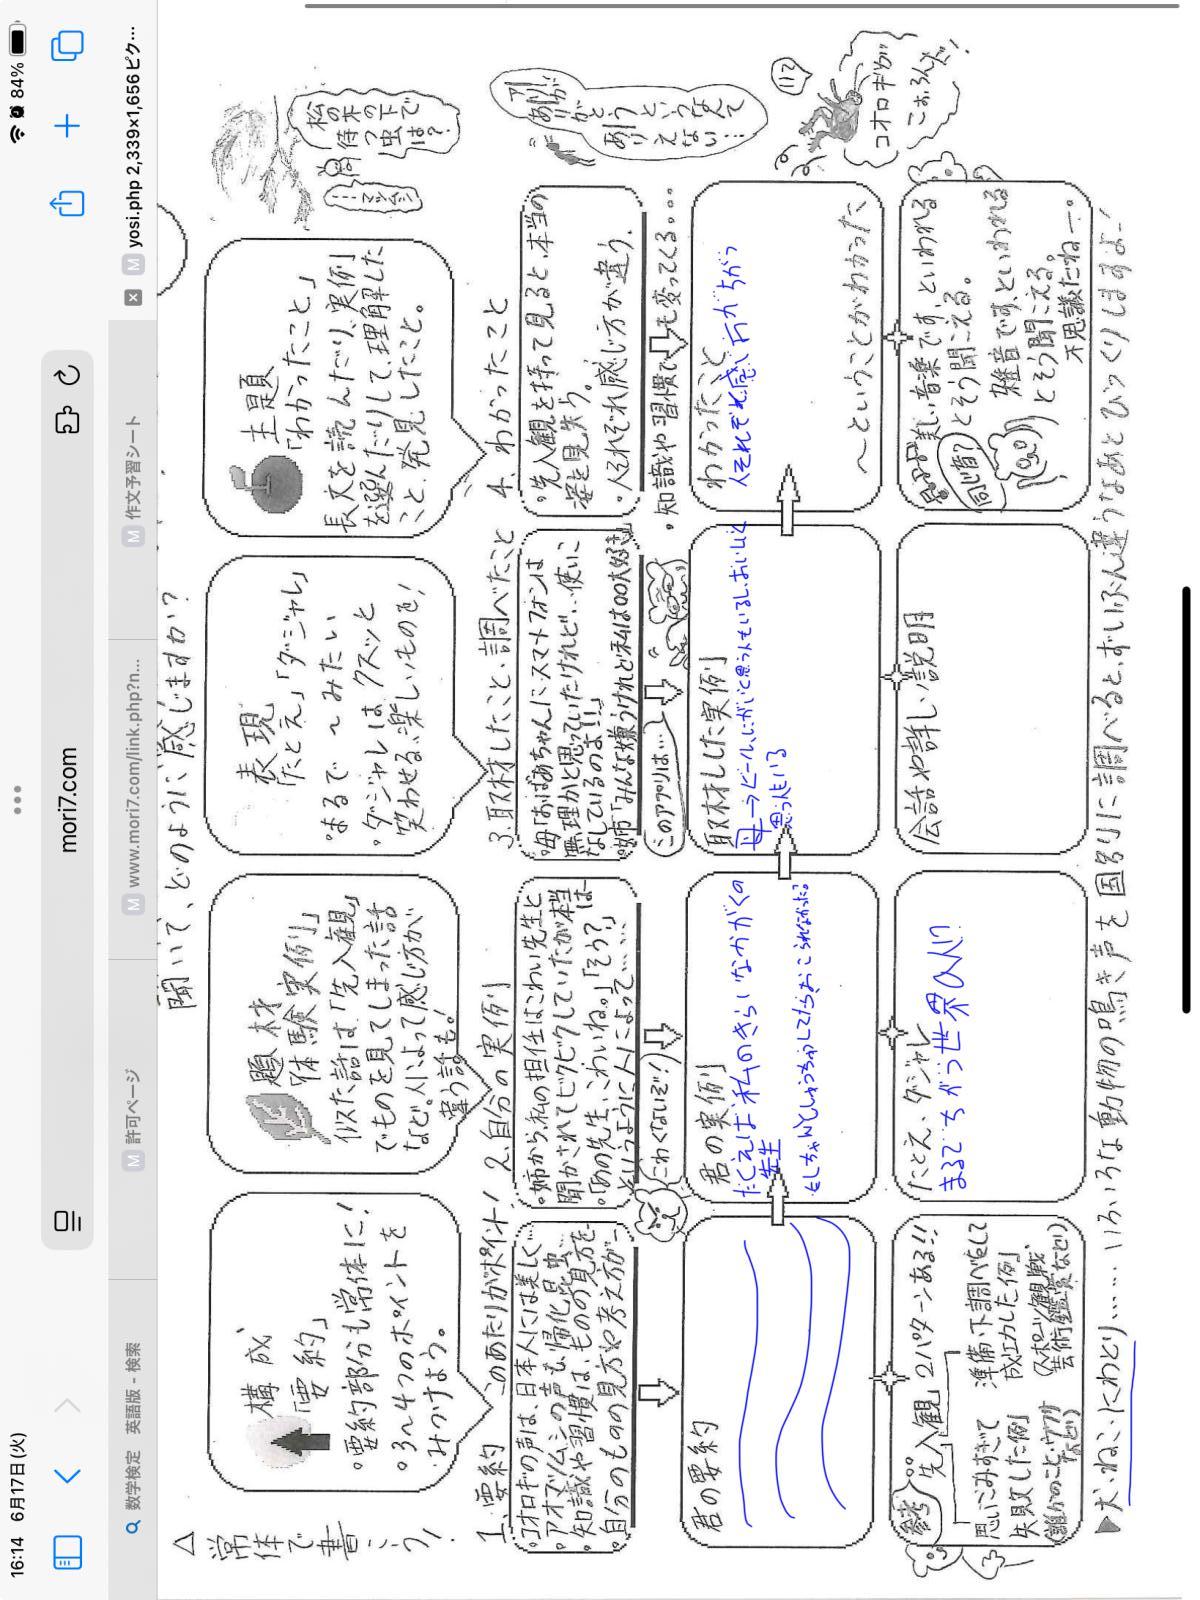 16:14 6月17日(火)
84%
mori7.com
数学検定 英語版 - 検索
許可ページ
www.mori7.com/link.php?n...
作文予習シート
yosi.php 2,339×1,656 ピク...
△常体で書こう!
聞いて、どのように感じますか?
構成
「要約」
。要約部分も常体に!
。3〜4つのポイントを
みつけよう。
題材
「体験実例」
似た話は、「先入観」
でものを見てしまった話
など。人によって感じ方が
違う話も!
表現
「たとえ」「ダジャレ」
。まるで〜みたい
。ダジャレは、クスッと
笑わせる、楽しいものを!
主題
「わかったこと」
長文を読んだり、実例
を選んだりして、理解した
こと、発見したこと。
松の木の下で
待つ虫は?
1.要約 このあたりがポイント!
。コオロギの声は、日本人には美しく…
。アオマツムシの声も、帰化昆虫…
。知識や習慣は、ものの見方を…
。自分のものの見方や考え方が…
2.自分の実例
。姉から、私の担任はこわい先生と
聞かされてビクビクしていたが本当は…
。「あの先生、こわいね。」「そう?」
というように人によって……
こわくないぞ!
3.取材したこと、調べたこと
。母「おばあちゃんに、スマートフォンは
無理かと思っていたけれど…使いこ
なしているのよ!!」
。姉「みんな嫌うけれど私は〇〇大好き」
このアプリは…
4.わかったこと
。先入観を持って見ると、本当の
姿を見失う。
。人それぞれ感じ方が違う。
。知識や習慣でも変ってくる。。。
ありがとうといつなんて
ありえない…
君の要約
君の実例
たとえば私のきらいなかがくの
先生
もしちゃんとしゅっちゅうしてたらおこられなかった。
取材した実例
母→ラビール、にがいと思う人もいるし、おいしいと
思う人もいる
わかったこと
人それぞれ感じ方がちがう
〜ということがわかった
コオロギが
こおろんだ!
参考…
先入観 2パターンある!!
思いこみすぎて
失敗した例
準備、下調べをして
成功した例
(スポーツ観戦、
芸術鑑賞など)
たとえ、ダジャレ
まるでちがう世界の人!?
会話や詳しい説明
美しい音楽です、といわれる
とそう聞こえる。
同じ音?
雑音です、といわれる
とそう聞こえる。
不思議だねー。
▶犬、ねこ、にわとり……いろいろな動物の鳴き声を国別に調べると、ずいぶん違うなあとびっくりしますよ!